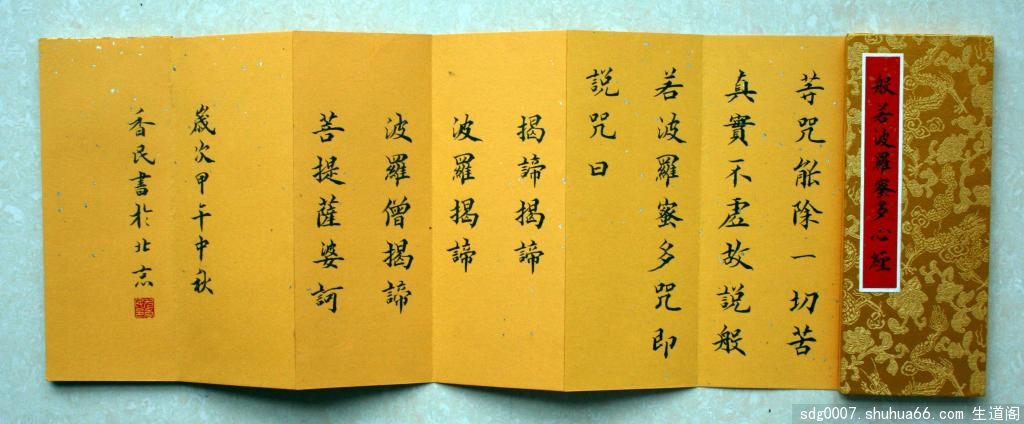 般若波羅蜜多心經
等咒能除一切苦
真實不虛故説般
若波羅蜜多咒即
説咒曰
揭諦揭諦
波羅揭諦
波羅僧揭諦
菩提薩婆訶
歲次甲午中秋
香民書於北京
sdg0007.shuhua66.com 生道阁